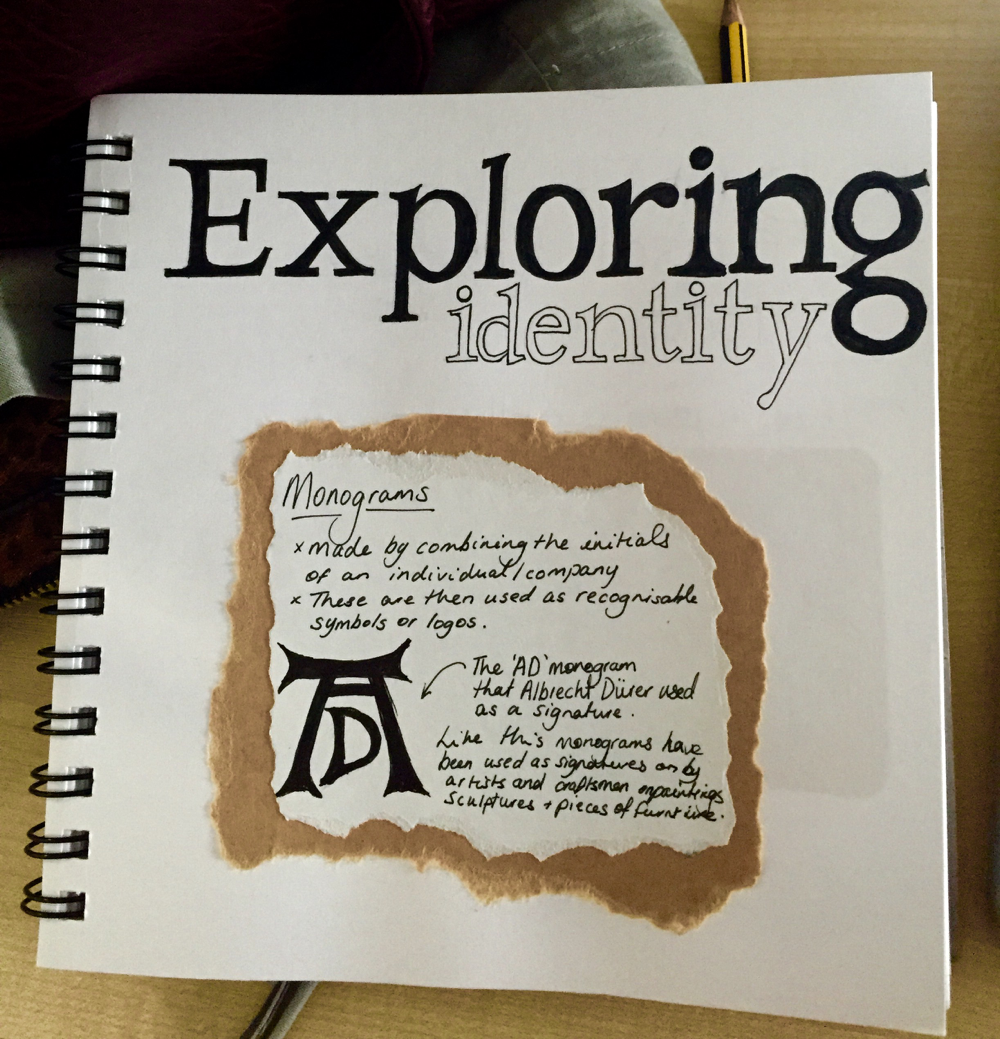 Exploring
identity
Monograms
× made by combining the initials
of an individual/company
× These are then used as recognisable
symbols or logos.
AD
The 'AD' monogram
that Albrecht Dürer used
as a signature.
Like this monograms have
been used as signatures on by
artists and craftsmen on paintings
sculptures + pieces of furniture.